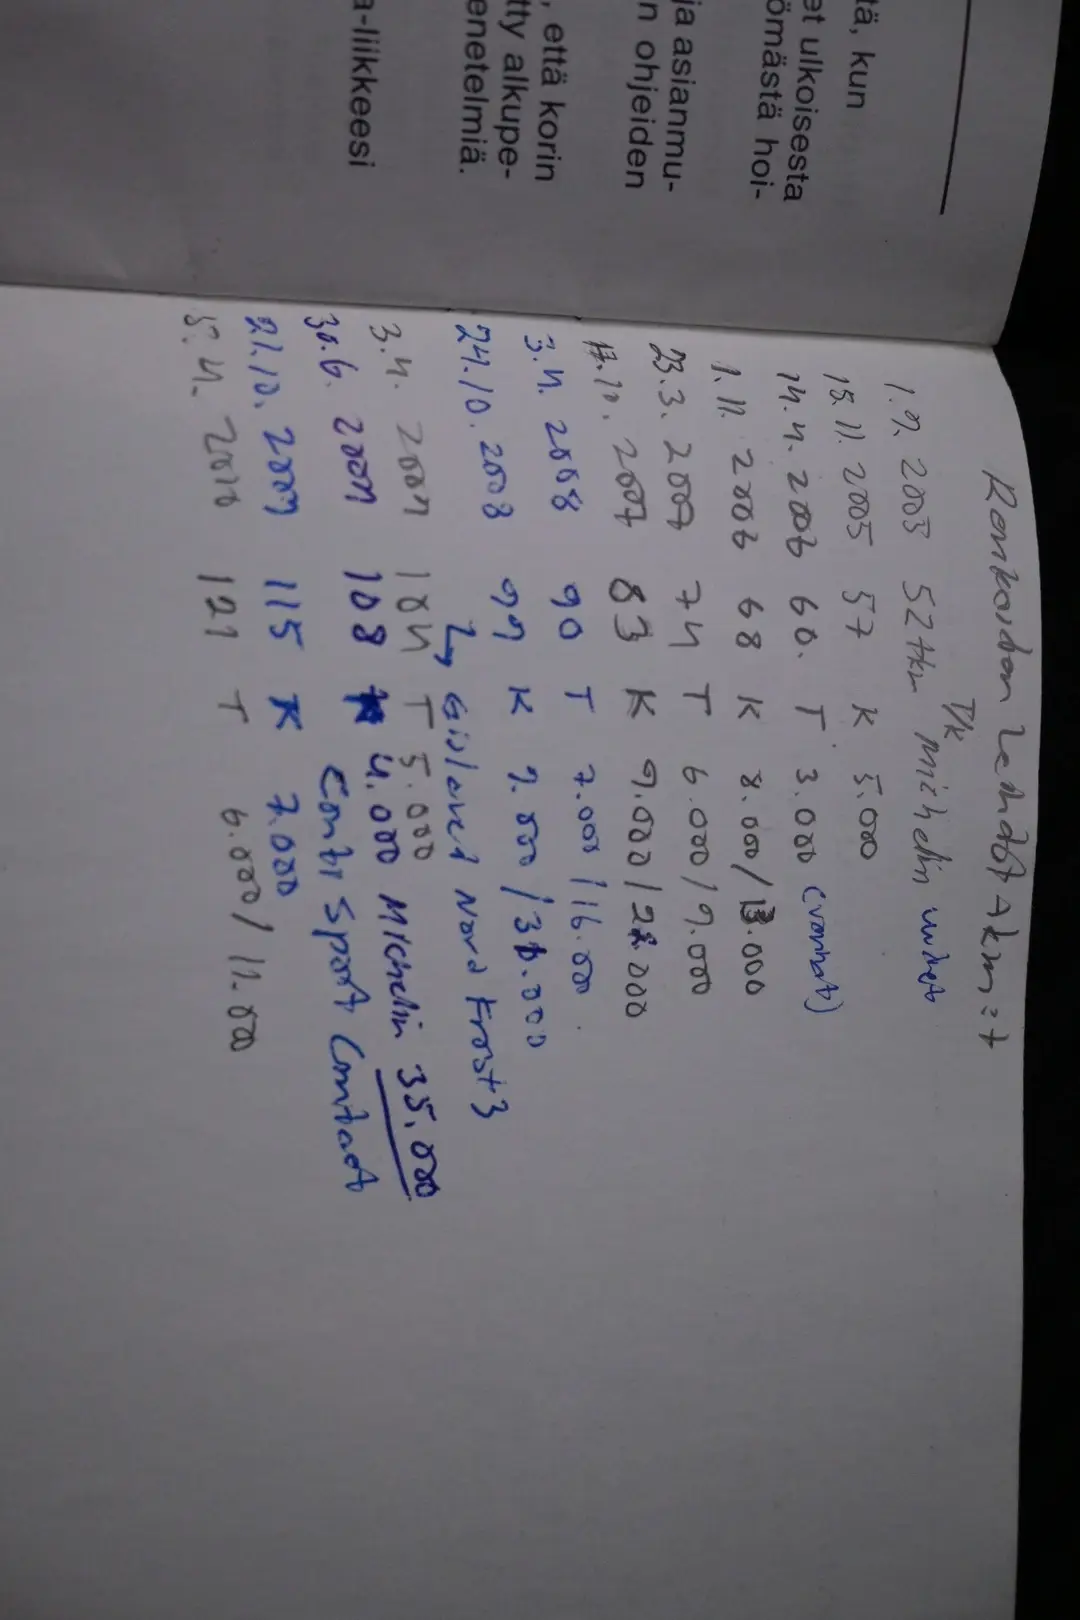 tä, kun
et ulkoisesta
ömästä hoi-
ja asianmu-
n ohjeiden
, että korin
tty alkupe-
enetelmiä.
a-liikkeesi
T/K
1.9. 2005 52 tkm Michelin uudet
15.11. 2005 57 K 5.000
14.4. 2006 60. T 3.000 (vanhat)
1.11. 2006 68 K 8.000/13.000
23.3. 2007 74 T 6.000/9.000
17.10. 2007 83 K 9.000/22.000
3.4. 2008 90 T 7.000/16.000
24.10. 2008 99 K 9.000/31.000
↳ Gislaved Nord Frost 3
3.4. 2009 104 T 5.000
30.6. 2009 108 K 4.000 Michelin 35.000
Conti Sport Contact
21.10. 2009 115 K 7.000
5.4. 2010 121 T 6.000/11.000